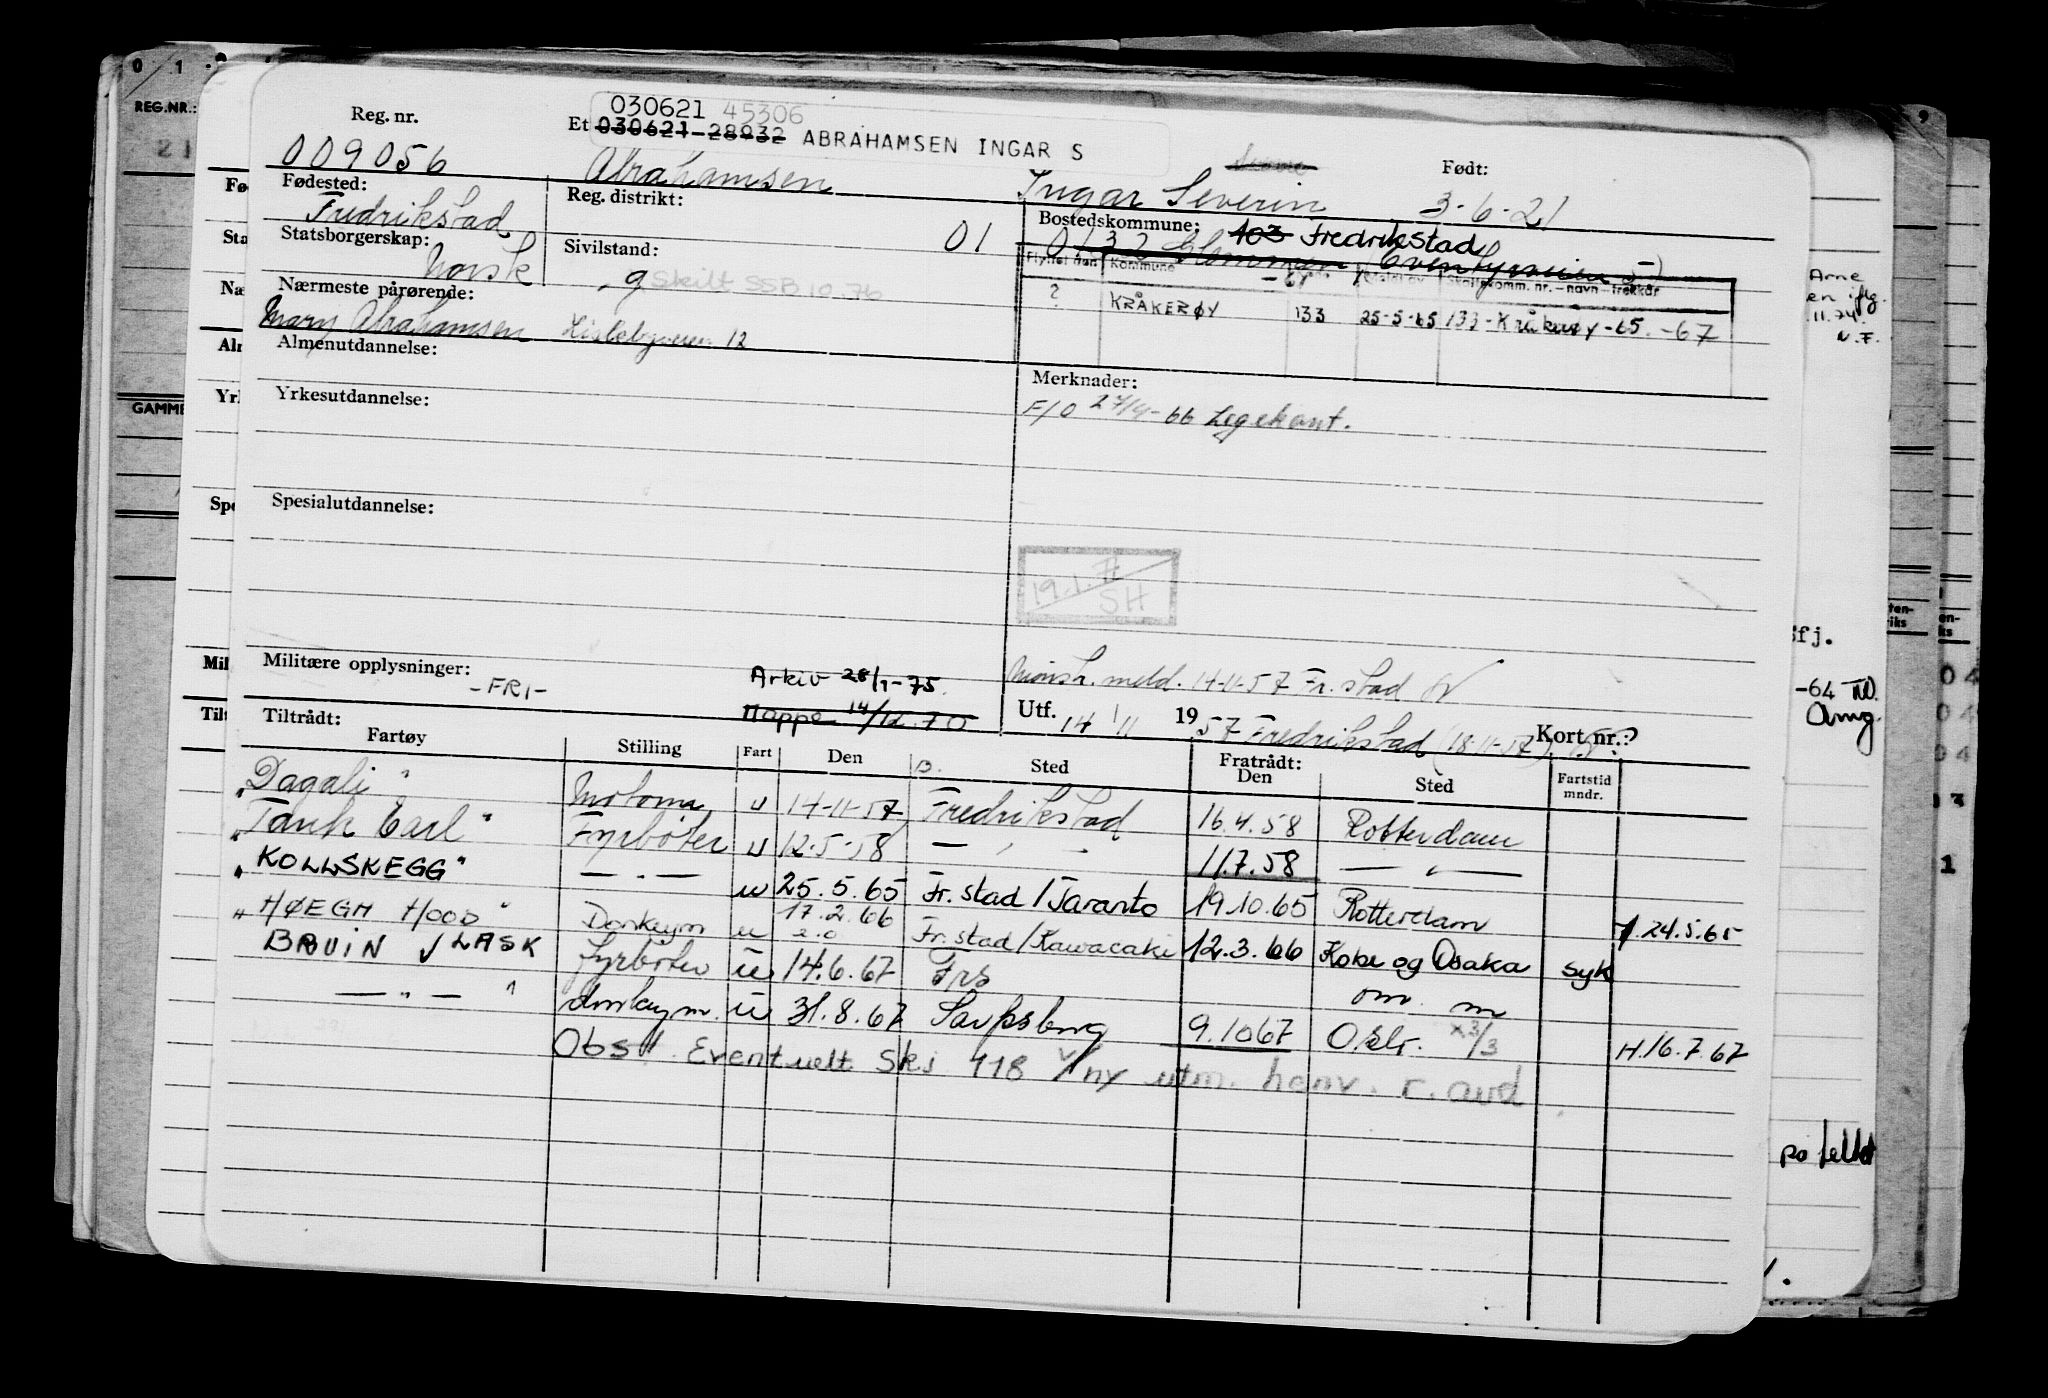 030621 45306
Reg. nr. Et 030621-28932 ABRAHAMSEN INGAR S
009056 Abrahamsen Ingar Severin Født: 3-6-21
Fødested: Fredrikstad Reg. distrikt: 01 Bostedskommune: 103 Fredrikstad
0132 Glemmen (Eventyrveien 5)
Statsborgerskap: Norsk Sivilstand: g Skilt SSB 10.76
Flyttet fra Kommune Skattekomm. nr. - navn - trekkår
? KRÅKERØY 133 25-5-65 133-Kråkerøy-65.-67
Nærmeste pårørende:
Mary Abrahamsen 12
Almenutdannelse:
Merknader:
F/O 27/4-66 Legekont.
Yrkesutdannelse:
Spesialutdannelse:
19.1.71
SH
Militære opplysninger: -FRI-
Arkiv 28/1-75.
Mønstr. meld. 14-11-57 Fr.stad
Mappe 14/12.70
Utf. 14/11 1957 Fredrikstad (18-11-57) Kort nr.: ?
Tiltrådt: Fratrådt:
Fartøy Stilling Fart Den Sted Den Sted Fartstid mndr.
"Dagali" Motorm u 14-11-57 Fredrikstad 16.4.58 Rotterdam
"Tank Earl" Fyrbøter u 12-5-58 — " — 11.7.58 — " —
"KOLLSKEGG" — " — u 25.5.65 Fr.stad/Taranto 19.10.65 Rotterdam 1.24.5.65
"HØEGH HOOD" Donkeym u 17.2.66 Fr.stad/Kawacaki 12.3.66 Kobe og Osaka syk
BRUIN VLASK fyrbøter u 14.6.67 Frs om m
— " — " donkeym. u 31.8.67 Sarpsborg 9.1067 Oslo. x3/3 H.16.7.67
Obs! Eventuelt Skj 118 v/ny utm. henv. r. avd
0 1
REG.NR.:
21
Fø
Sta
Næ
Alm
Yrl
GAMME
Spe
Mil
Tilt
9
Arne
en iflg.
11.74.
N.F.
sfj.
-64
Omg.
04
1